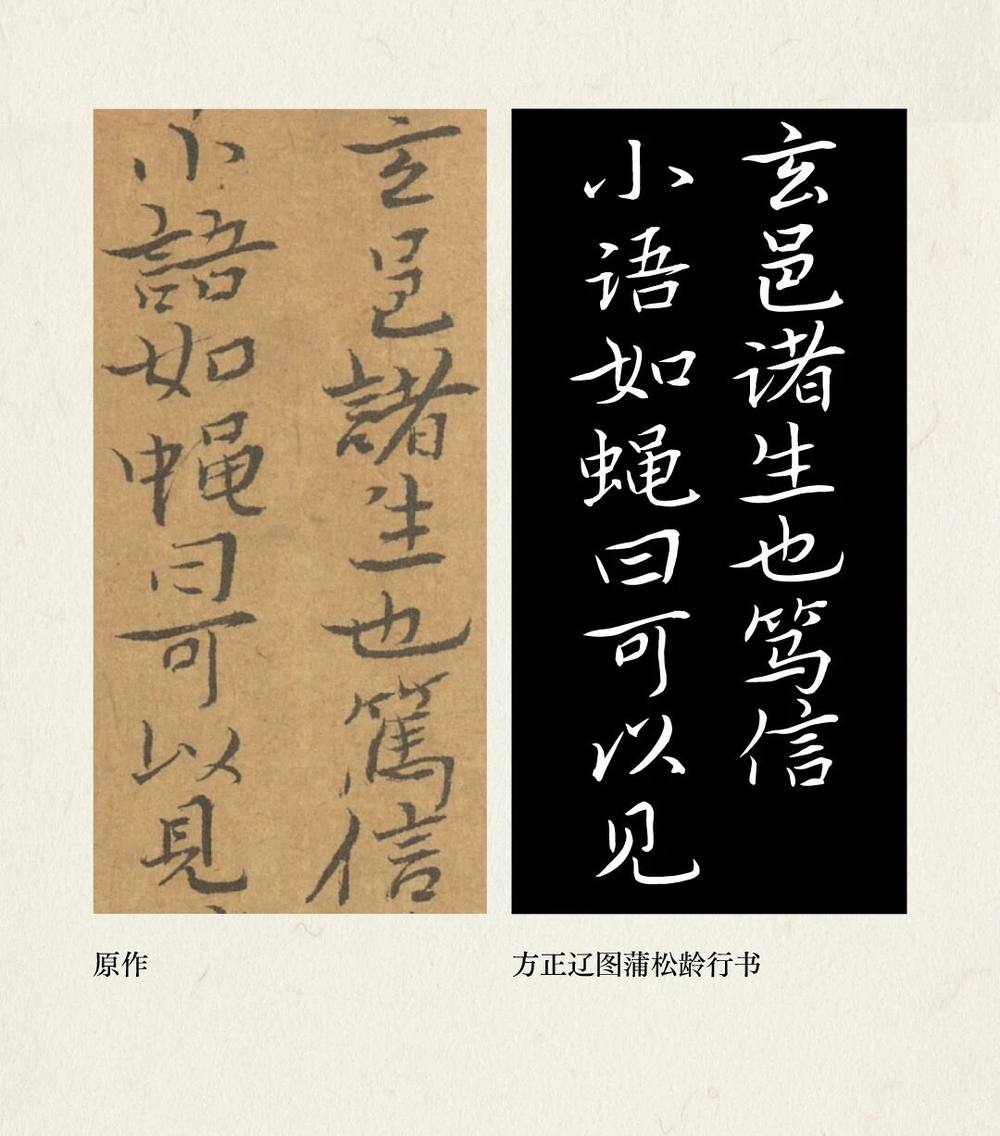 玄邑諸生也篤信
小語如蝇曰可以見
原作
玄邑诸生也笃信
小语如蝇曰可以见
方正辽图蒲松龄行书